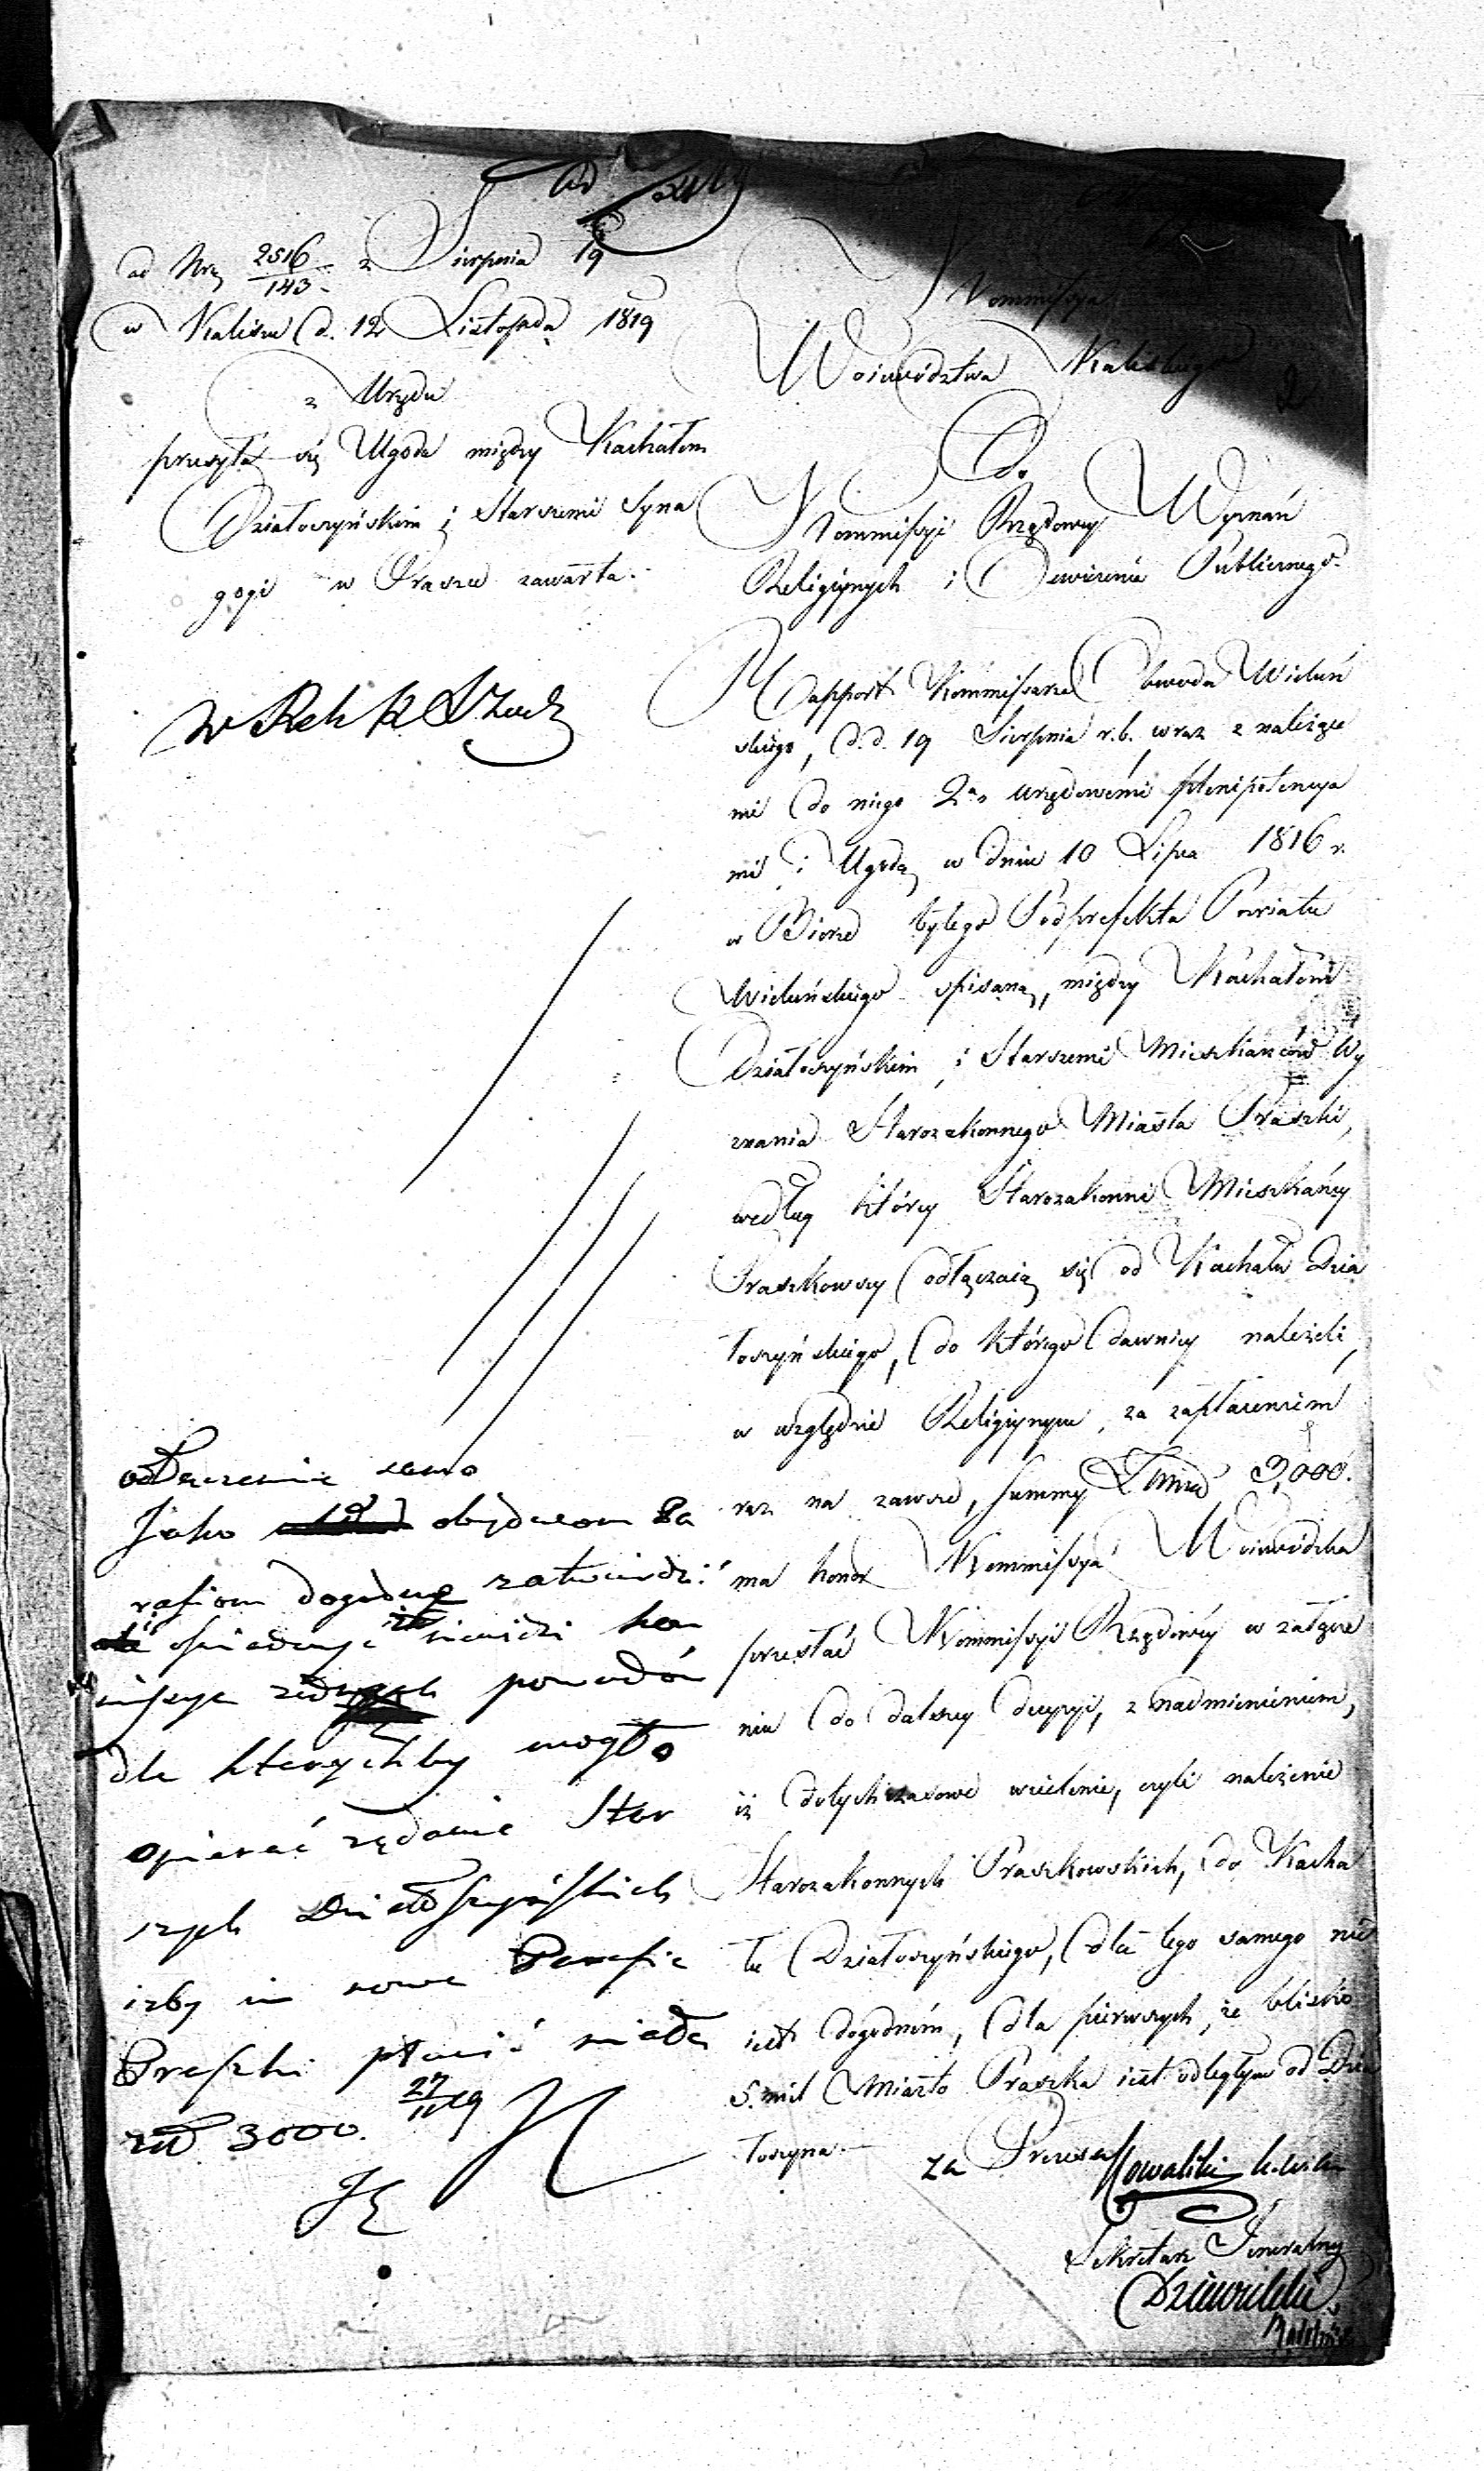 ad Nrŭ 2516/143 z Sierpnia 19
w Kaliszu d. 12 Listopada 1819
z Urzędu
przesyła się Ugoda między Kachałem
Działoszyńskim i Starszemi Syna
gogi w Praszce zawarta.
Kommissya
Woiewództwa Kaliskiego
2
Do
Kommissyi Rządowey Wyznań
Religiynych i Oświecenia Publicznego.
Rapport Kommissarza Obwodu Wieluń
skiego, d.d. 19 Sierpnia r.b. wraz z należące
mi do niego 2ma urzędowemi plenipotencya
mi i Ugodą w dniu 10 Lipca 1816 r.
w Biórze byłego Podprefekta Powiatu
Wieluńskiego spisaną, między Kachałem
Działoszyńskim i Starszemi Mieszkańców Wy
znania Starozakonnego Miasta Praszki,
według którey Starozakonni Mieszkańcy
Praszkowscy odłączaią się od Kachału Dzia
łoszyńskiego, do którego dawniey należeli,
w względzie Religiynym, za zapłaceniem
raz na zawsze, summy Złotych 3,000.
ma honor Kommissya Woiewódzka
przesłać Kommissyi Rządowéy w załącze
niu do dalszey decyzyi, z nadmienieniem,
iż dotychczasowe wcielenie, czyli należenie
Starozakonnych Praszkowskich, do Kacha
łu Działoszyńskiego, dla tego samego nie
iest dogodném, dla pierwszych, że blisko
5. mil Miasto Praszka iest odległym od Dzia
łoszyna.
za Prezesa Kowalski
Sekretarz Jeneralny
odłączenie samo
Jako obydwom Pa
rafiom dogodne zatwierdzi
i oświadczyć że niewidzi kom
missya żadnych powodów
dla którychby mogło
opierać żądanie Star
szych Działoszyńskich
iżby im nowa Parafia
Praszki płacić miała
złł 3000. 27/11 19